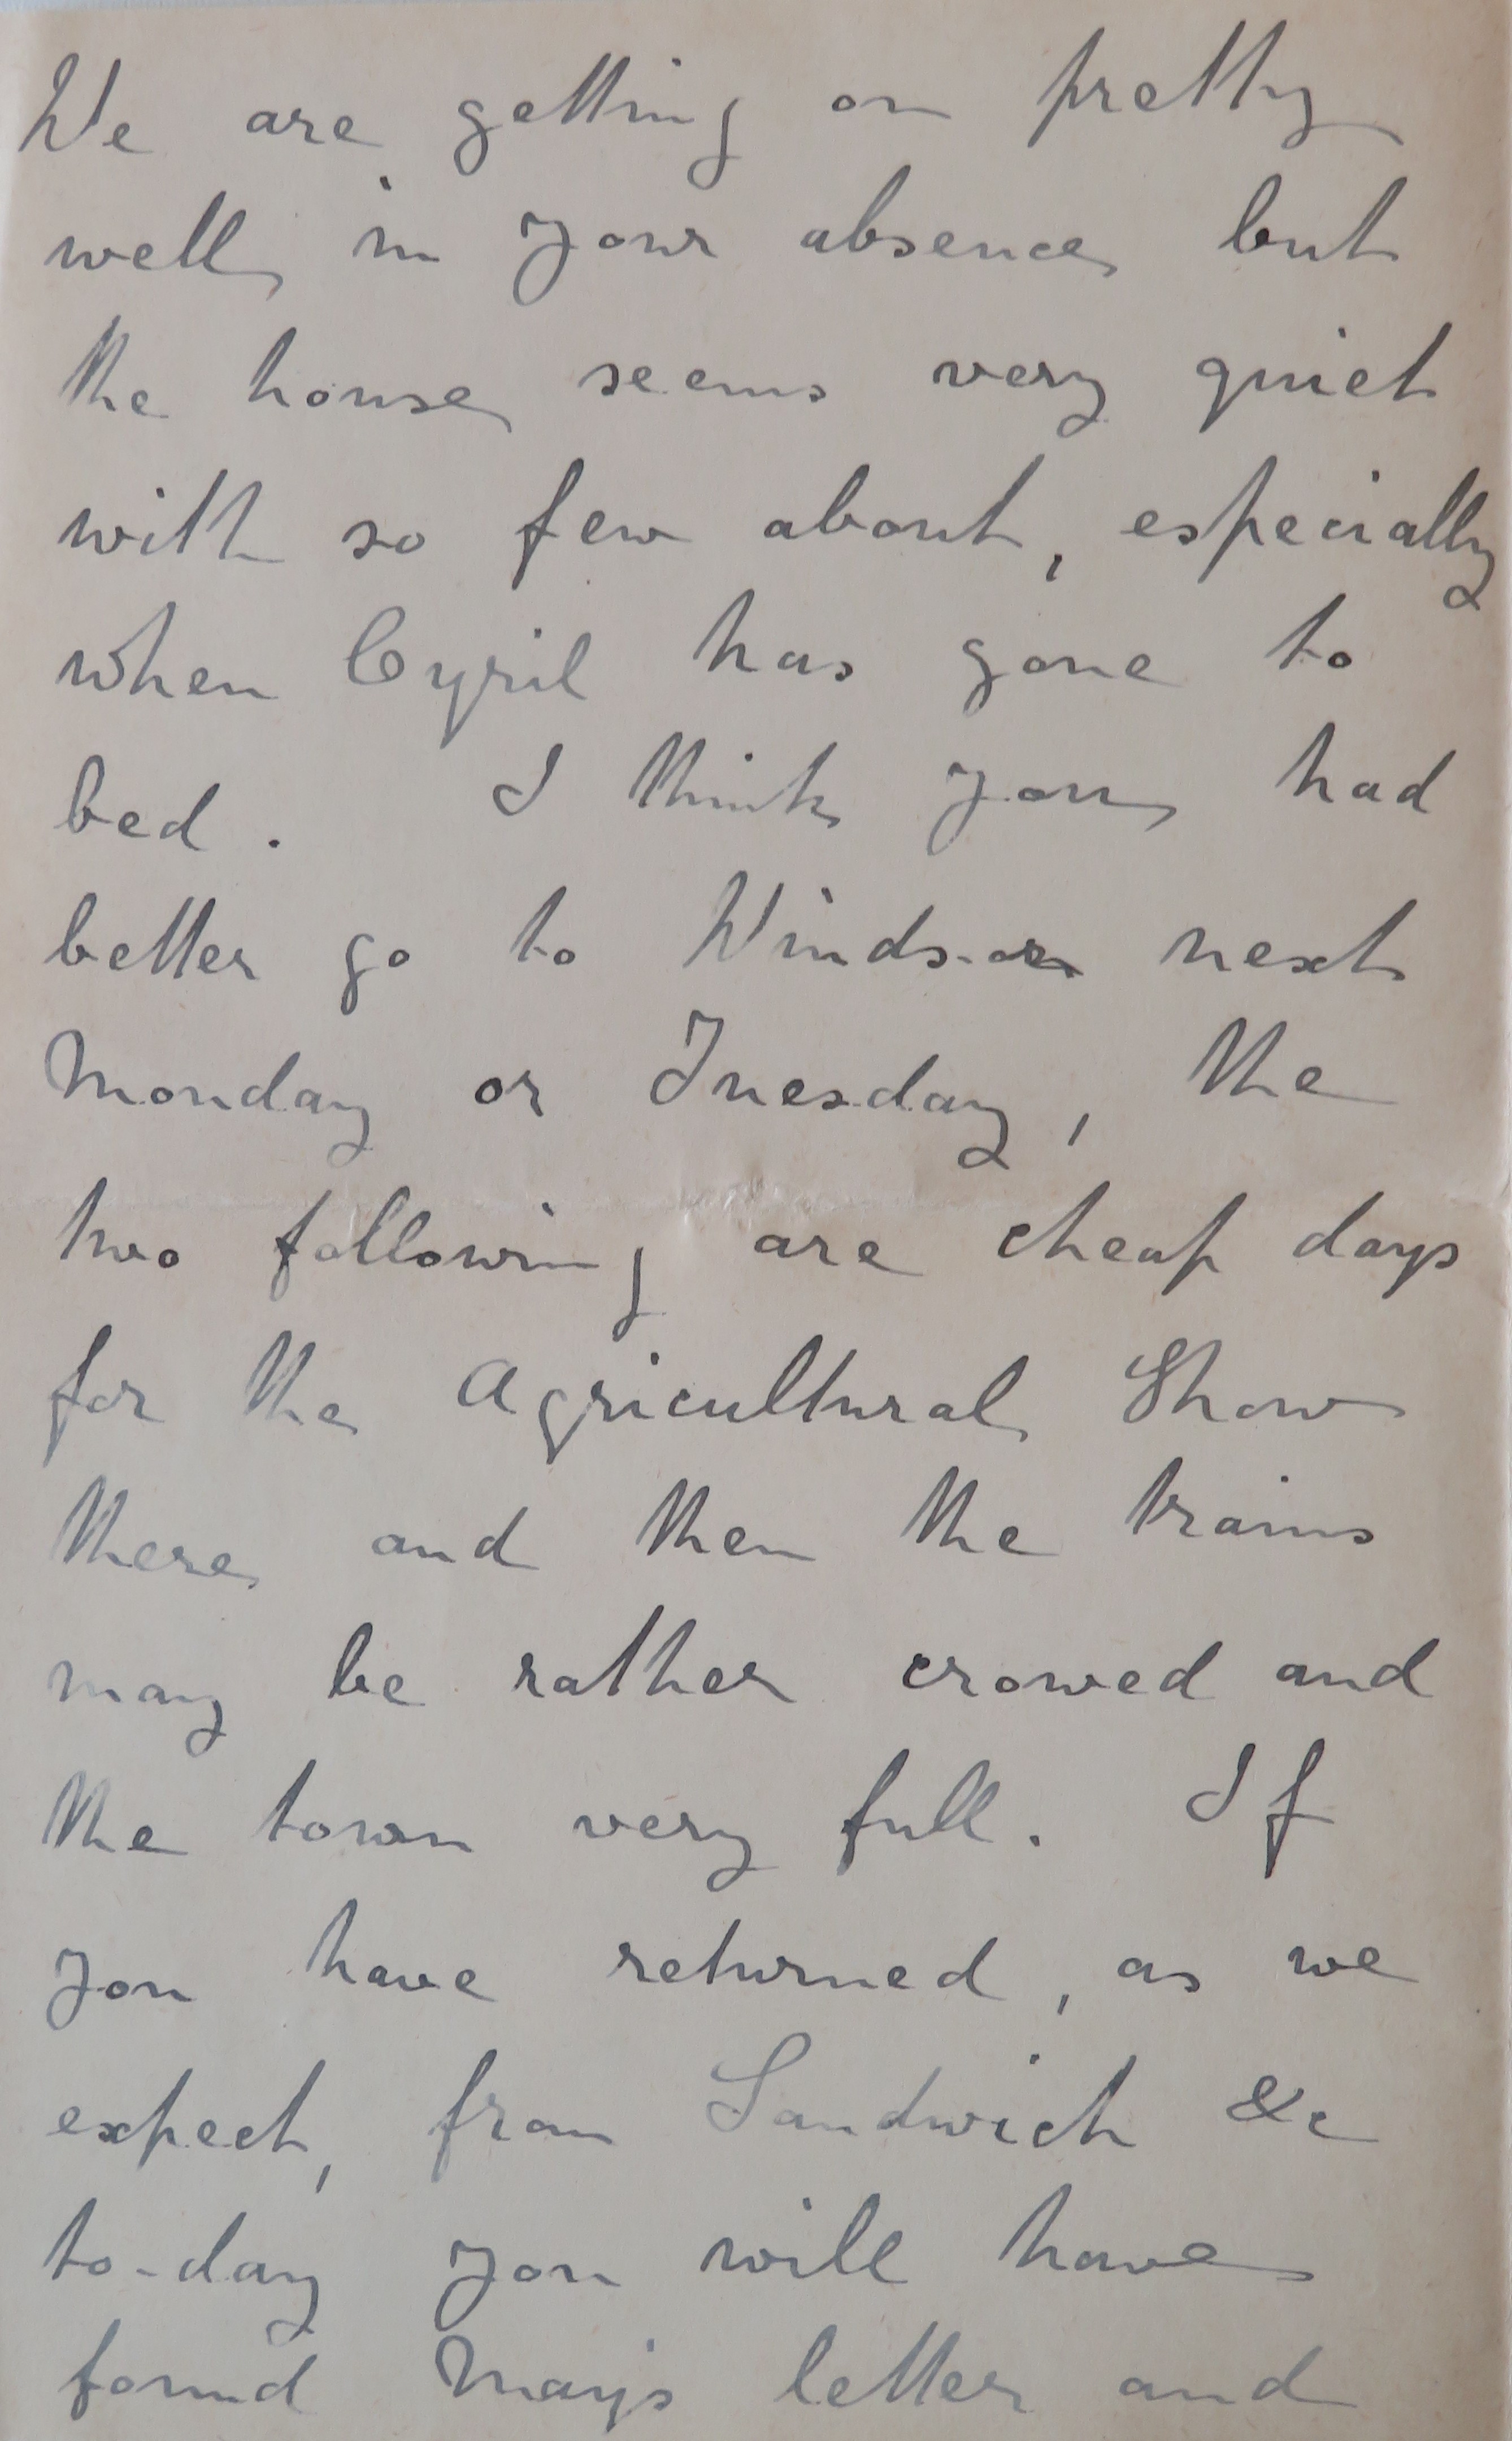 We are getting on pretty
well in your absence but
the house seems very quiet
with so few about, especially
when Cyril has gone to
bed. I think you had
better go to Windsor next
Monday or Tuesday, the
two following are cheap days
for the Agricultural Show
there and then the trains
may be rather crowed and
the town very full. If
you have returned, as we
expect, from Sandwich &c
to-day you will have
found May's letter and